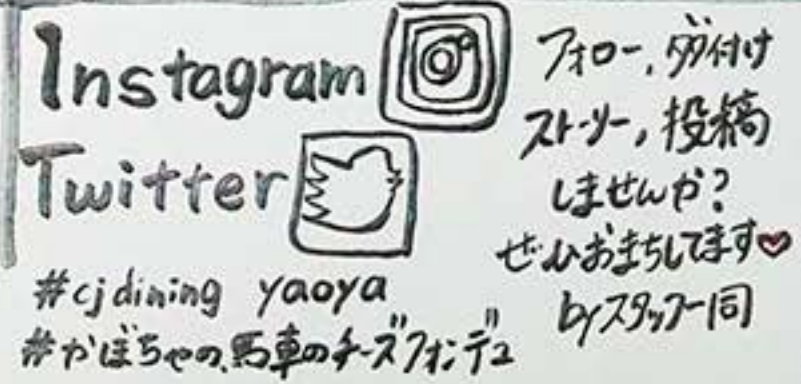 Instagram
Twitter
#cjdining yaoya
#かぼちゃの馬車のチーズフォンデュ
フォロー、タグ付け
ストーリー、投稿
しませんか?
ぜひおまちしてます♥
byスタッフ一同